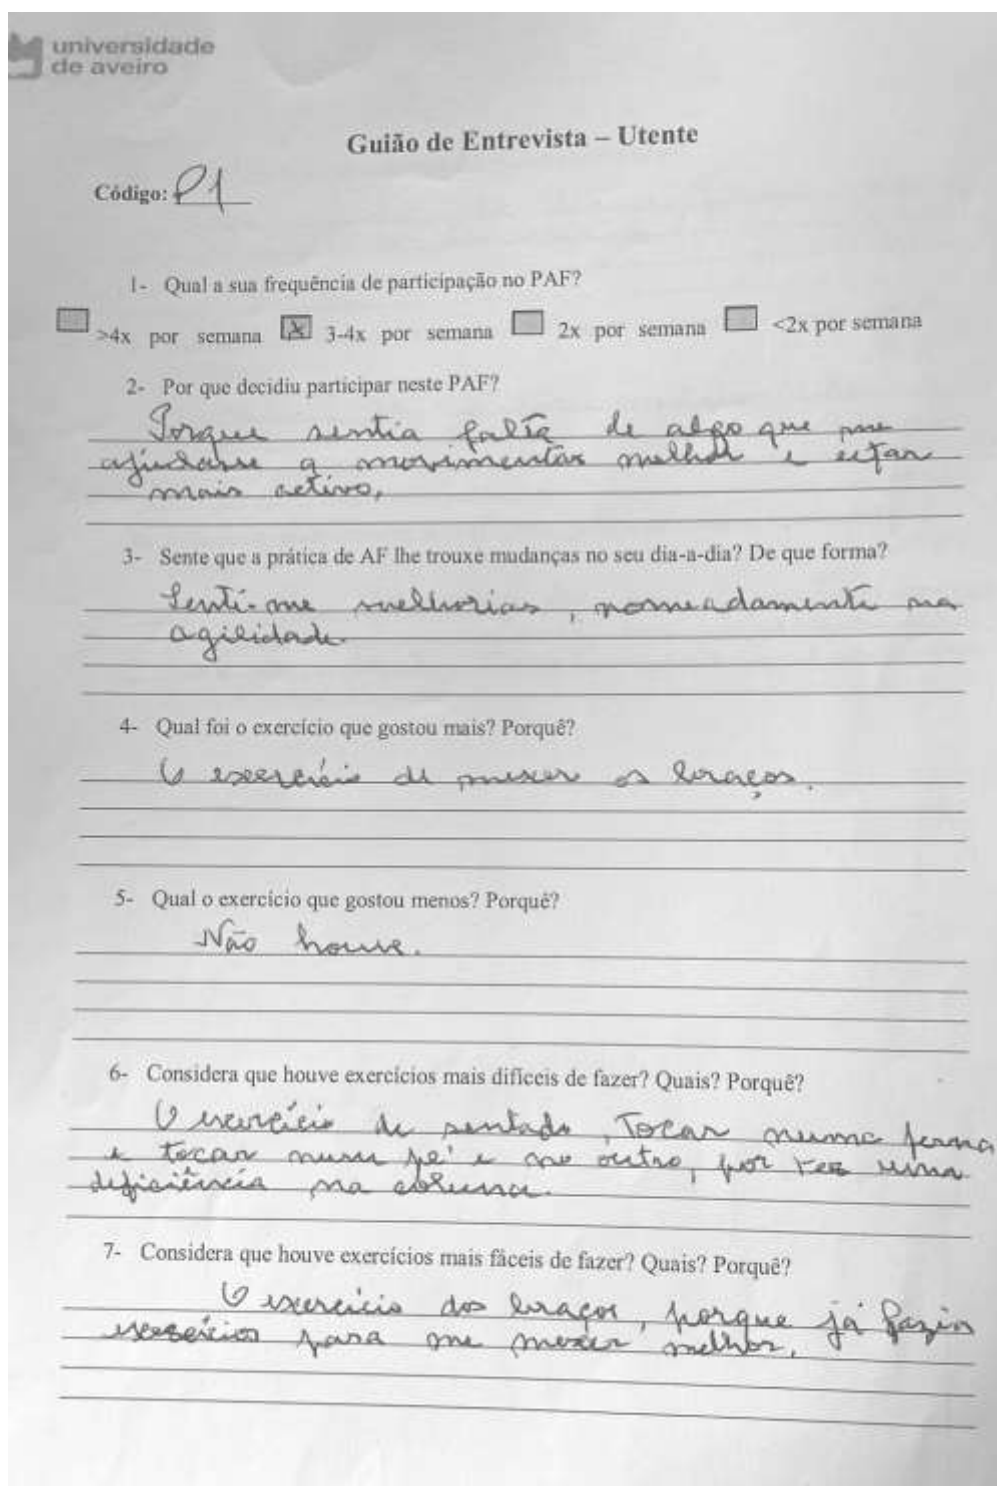 universidade
de aveiro
Guião de Entrevista – Utente
Código: P1
1- Qual a sua frequência de participação no PAF?
>4x por semana x 3-4x por semana 2x por semana <2x por semana
2- Por que decidiu participar neste PAF?
Porque sentia falta de algo que me
ajudasse a movimentar melhor e estar
mais activo.
3- Sente que a prática de AF lhe trouxe mudanças no seu dia-a-dia? De que forma?
Senti-me melhorias, nomeadamente na
agilidade.
4- Qual foi o exercício que gostou mais? Porquê?
O exercício de mexer os braços.
5- Qual o exercício que gostou menos? Porquê?
Não houve.
6- Considera que houve exercícios mais difíceis de fazer? Quais? Porquê?
O exercício de sentado, Tocar numa perna
e tocar num pé e no outro, por ter uma
deficiência na coluna.
7- Considera que houve exercícios mais fáceis de fazer? Quais? Porquê?
O exercício dos braços, porque já fazia
exercícios para me mexer melhor.